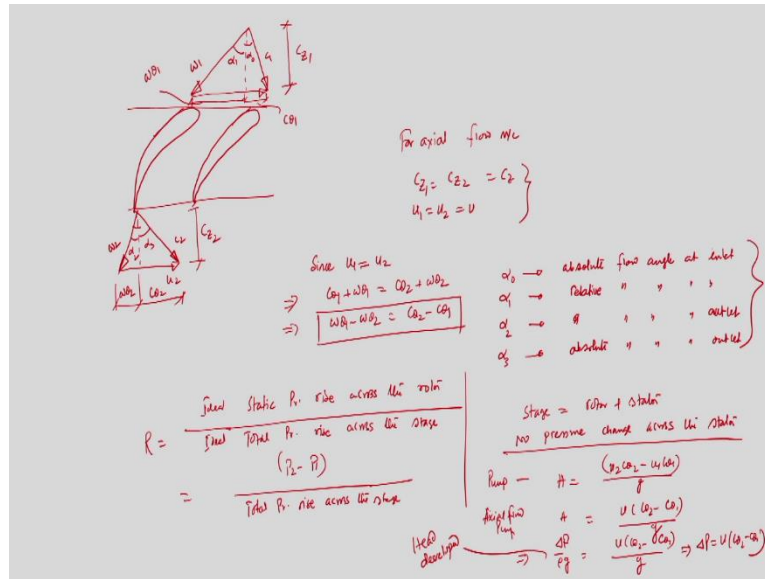 w₁ α₁ α₀ c₁ C_{Z1}
wθ₁
cθ₁
w₂ α₂ α₃ c₂ C_{Z2}
u₂
wθ₂ cθ₂
For axial flow m/c
C_{Z1} = C_{Z2} = C_Z
u₁ = u₂ = u
Since u₁ = u₂
⇒ cθ₁ + wθ₁ = cθ₂ + wθ₂
⇒ wθ₁ - wθ₂ = cθ₂ - cθ₁
α₀ → absolute flow angle at inlet
α₁ → relative " " " "
α₂ → " " " " outlet
α₃ → absolute " " " outlet
R = Ideal Static Pr. rise across the rotor
Ideal Total Pr. rise across the stage
= (P₂ - P₁)
Total Pr. rise across the stage
Stage = rotor + stator
No pressure change across the stator
Pump — H = (u₂cθ₂ - u₁cθ₁)
g
Axial flow Pump H = u(cθ₂ - cθ₁)
g
Head developed ⇒ ΔP/ρg = u(cθ₂ - cθ₁)/g ⇒ ΔP = u(cθ₂ - cθ₁)